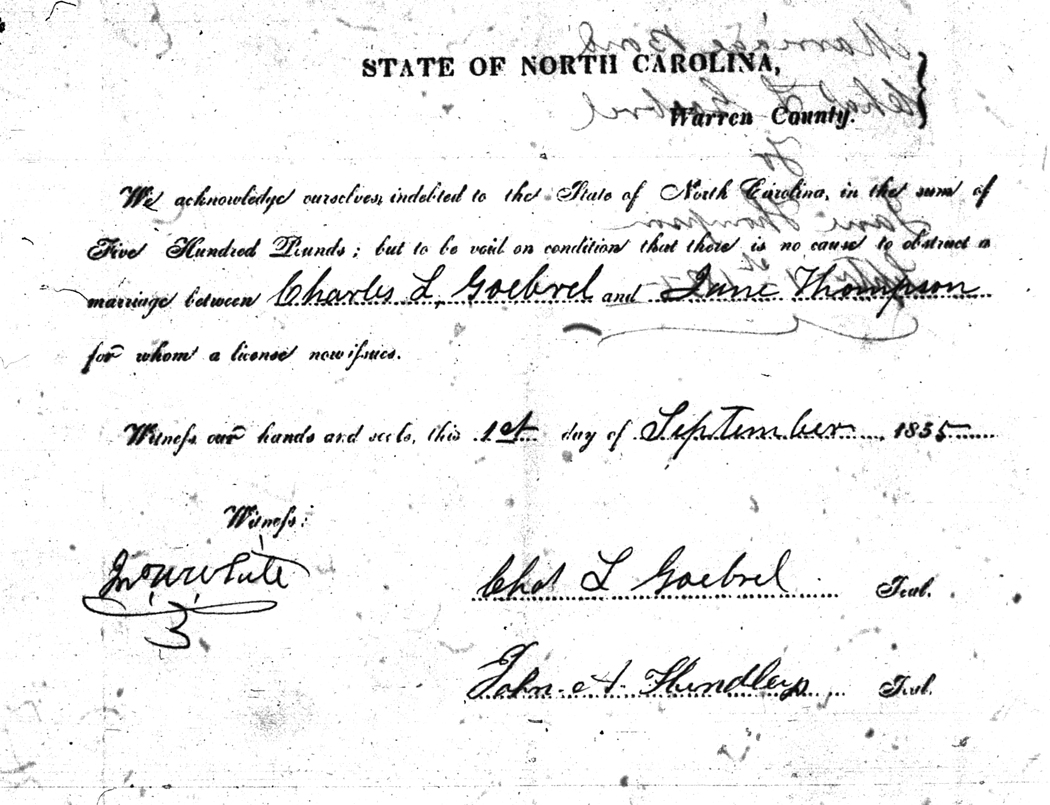 STATE OF NORTH CAROLINA,
Warren County.
We acknowledge ourselves indebted to the State of North Carolina, in the sum of
Five Hundred Pounds; but to be void on condition that there is no cause to obstruct a
marriage between Charles L. Goebrel and Jane Thompson
for whom a license now issues.
Witness our hands and seals, this 1st day of September, 1855
Witness:
Jno W White
Chas L Goebrel Seal.
John A Hundley Seal.
Marriage Bond
Chas L Goebrel
To
Jane Thompson